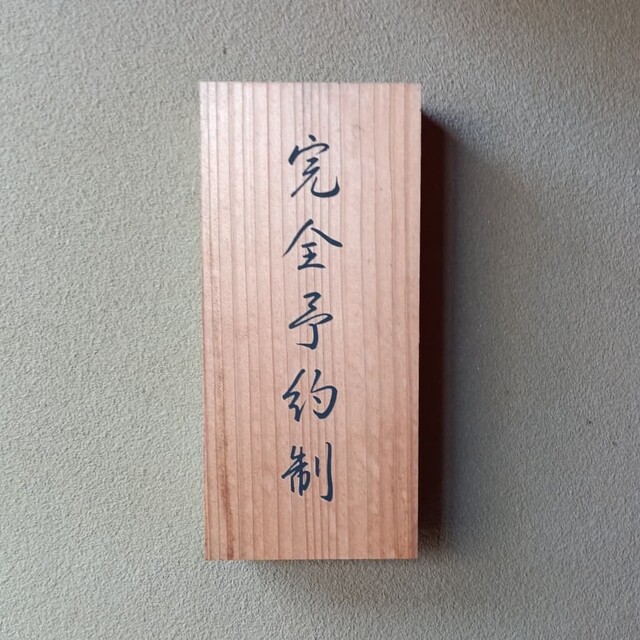 完全予約制